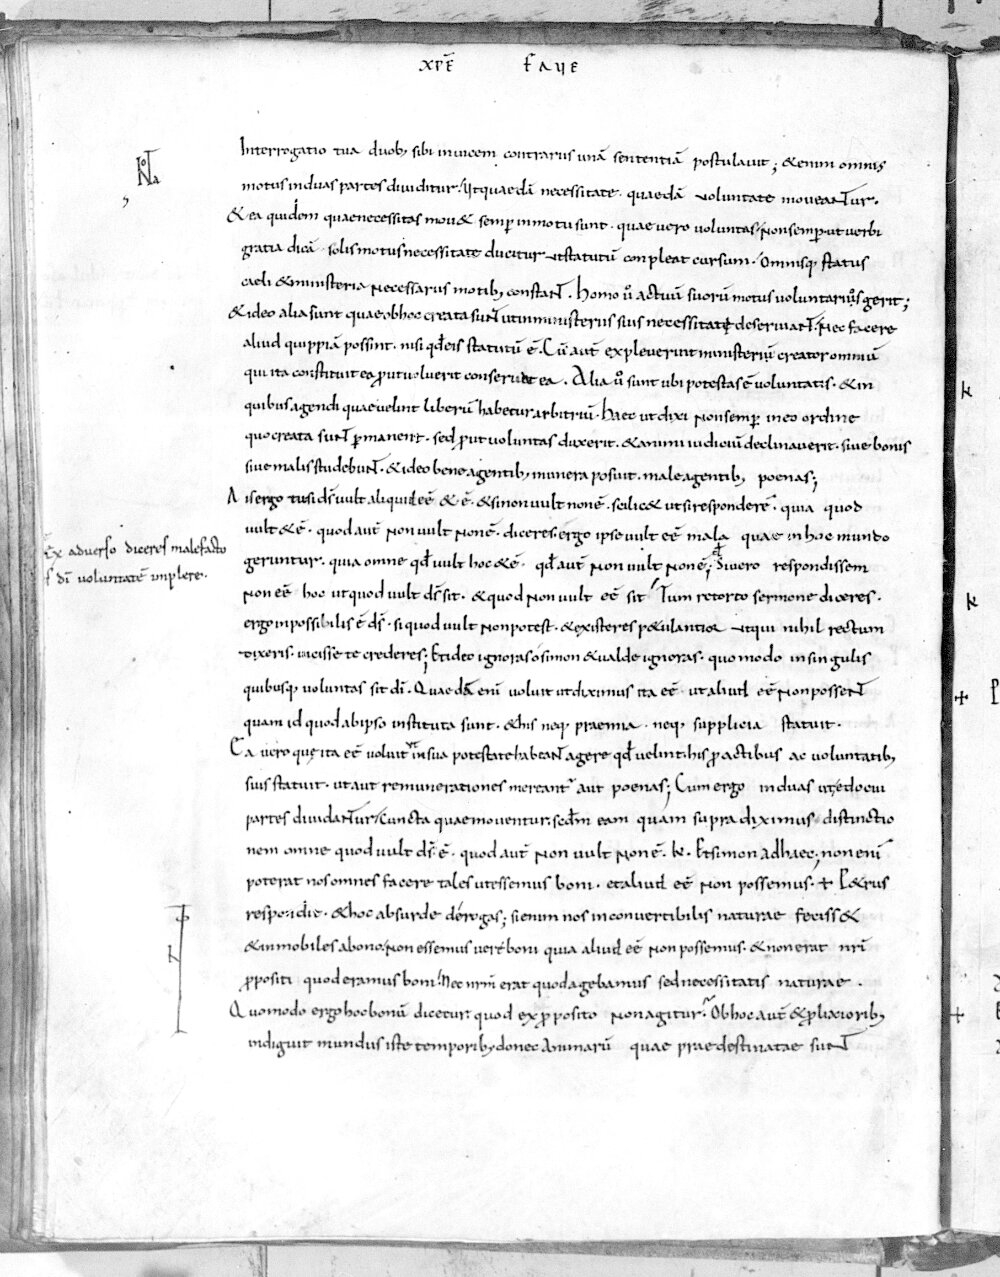 xp̄ē faue
Nōta
Interrogatio tua duob; sibi inuicem contrarus unā sententiā postulauit; &enim omnis
motus induas partes diuiditur. Utquaedā necessitate. quaedā uoluntate moueantur.
&ea quidem quaenecessitas mou& semp̄ inmotu sunt. quae uero uoluntas Nonsemp̄ ut uerbi
gratia dicā solis motus necessitate ducitur utstatutū conpleat cursum. Omnisq; status
caeli &ministeria Necessarus motib; constant. homo ū actuū suorū motus uoluntarius gerit;
&ideo alia sunt quae obhoc creata sunt utinministeriis suis necessitate deseruiant. Nec facere
aliud quippiā possint. nisi qd̄ eis statutū ē. Cū aut̄ expleuerint ministeriū creator omniū
qui ita constituit ea p̄ut uoluerit conseruet ea. Alia ū sunt ubi potestas ē uoluntatis. &in
quibus agendi quae uelint liberū habetur arbitriū. haec ut dixi Nonsemp̄ ineo ordine
quo creata sunt p̄manent. sed p̄ut uoluntas duxerit. &animi iudiciū declinauerit. siue bonis
siue malis studebunt. &ideo bene agentib; munera posuit. male agentib; poenas;
Ais ergo tu si d̄s uult aliquid eē & ē. &sinon uult nonē. scilic& utsi responderē quia quod
uult &ē. quod aut̄ Non uult Nonē. diceres. ergo ipse uult eē mala quae in hoc mundo
geruntur. quia omne qd̄ uult hoc &ē. qd̄ aut̄ Non uult Nonē; Si uero respondissem
Non eē hoc ut quod uult d̄s sit. &quod Non uult eē sit Tum retorto sermone diceres.
ergo inpossibilis ē d̄s. si quod uult Nonpotest. &existeres p&ulantior utqui nihil rectum
dixeris. uicisse te crederes; Etideo ignoras osimon &ualde ignoras. quomodo insingulis
quibusq; uoluntas sit dī. Quaedā enī uoluit utdiximus ita eē. ut aliud eē Nonpossent
quam id quod abipso instituta sunt. &his neq; praemia. neq; supplicia statuit.
Ea uero quę ita eē uoluit ut insua potestate habeant agere qd̄ uelint. his p̄ actibus ac uoluntatib;
suis statuit. ut aut remunerationes mereant̄ aut poenas; Cum ergo induas ut edocui
partes diuidantur Cuncta quae mouentur. scd̄m eam quam supra diximus distinctio
nem omne quod uult d̄s ē. quod aut̄ Non uult Nonē. k. Etsimon adhaec; non enī
poterat nos omnes facere tales utessemus boni. et aliud eē Non possemus. + P&rus
respondit. &hoc absurde d&rogas; si enim nos inconuertibilis naturae feciss&
&inmobiles abono. Non essemus uere boni quia aliud eē Non possemus. &non erat nrī
p̄positi quod eramus boni. Nec nrm̄ erat quod agebamus sed necessitatis naturae.
Quomodo ergo hoc bonū dicetur quod ex p̄posito Non agitur. Obhoc aut̄ &p̄lixiorib;
indiguit mundus iste temporib; donec animarū quae praedestinatae sunt
Ex aduerso diceres malefacto
dī uoluntatē implere.
k
k
+ P
+